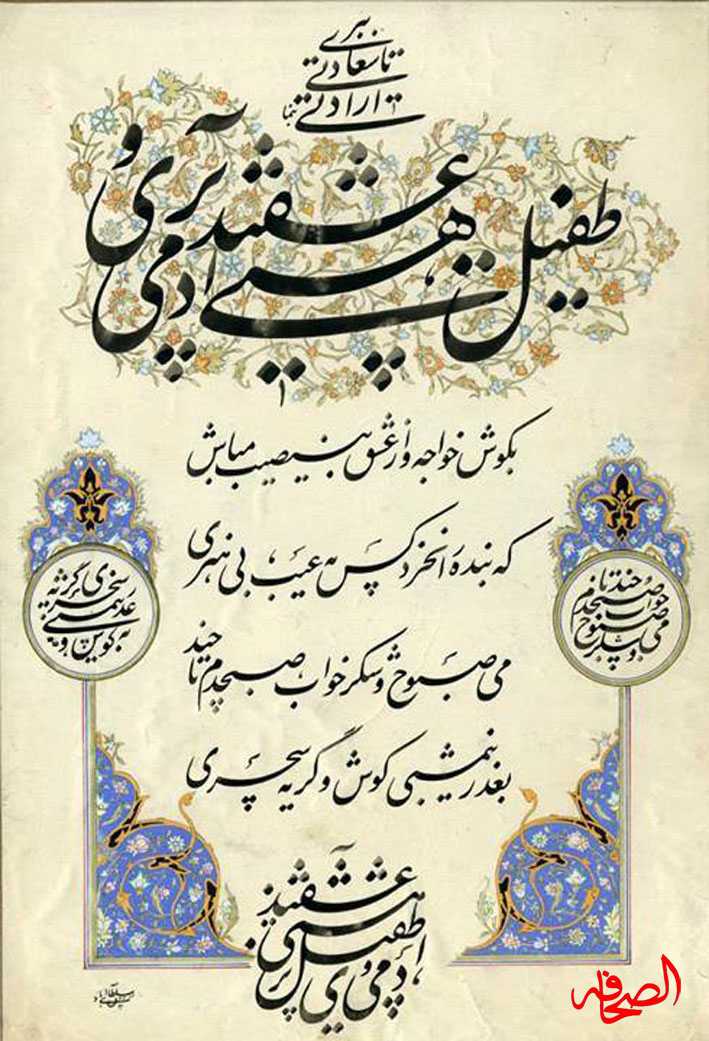 ارادتی بنما تا سعادتی ببری
طفیل هستی عشقند آدمی و پری
بکوش خواجه و از عشق بی نصیب مباش
که بنده را نخرد کس به عیب بی هنری
می صبوح و شکر خواب صبحدم تا چند
بعذر نیمشبی کوش و گریه سحری
می صبوح و شکر خواب صبحدم تا چند
به عذر نیمشبی کوش و گریه سحری
طفیل هستی عشقند آدمی و پری
الصحافه